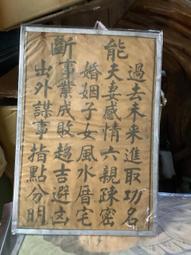 能斷
過去未來進取功名
夫妻感情六親疎密
婚姻子女風水厝宅
事業成敗趨吉避凶
出外謀事指點分明